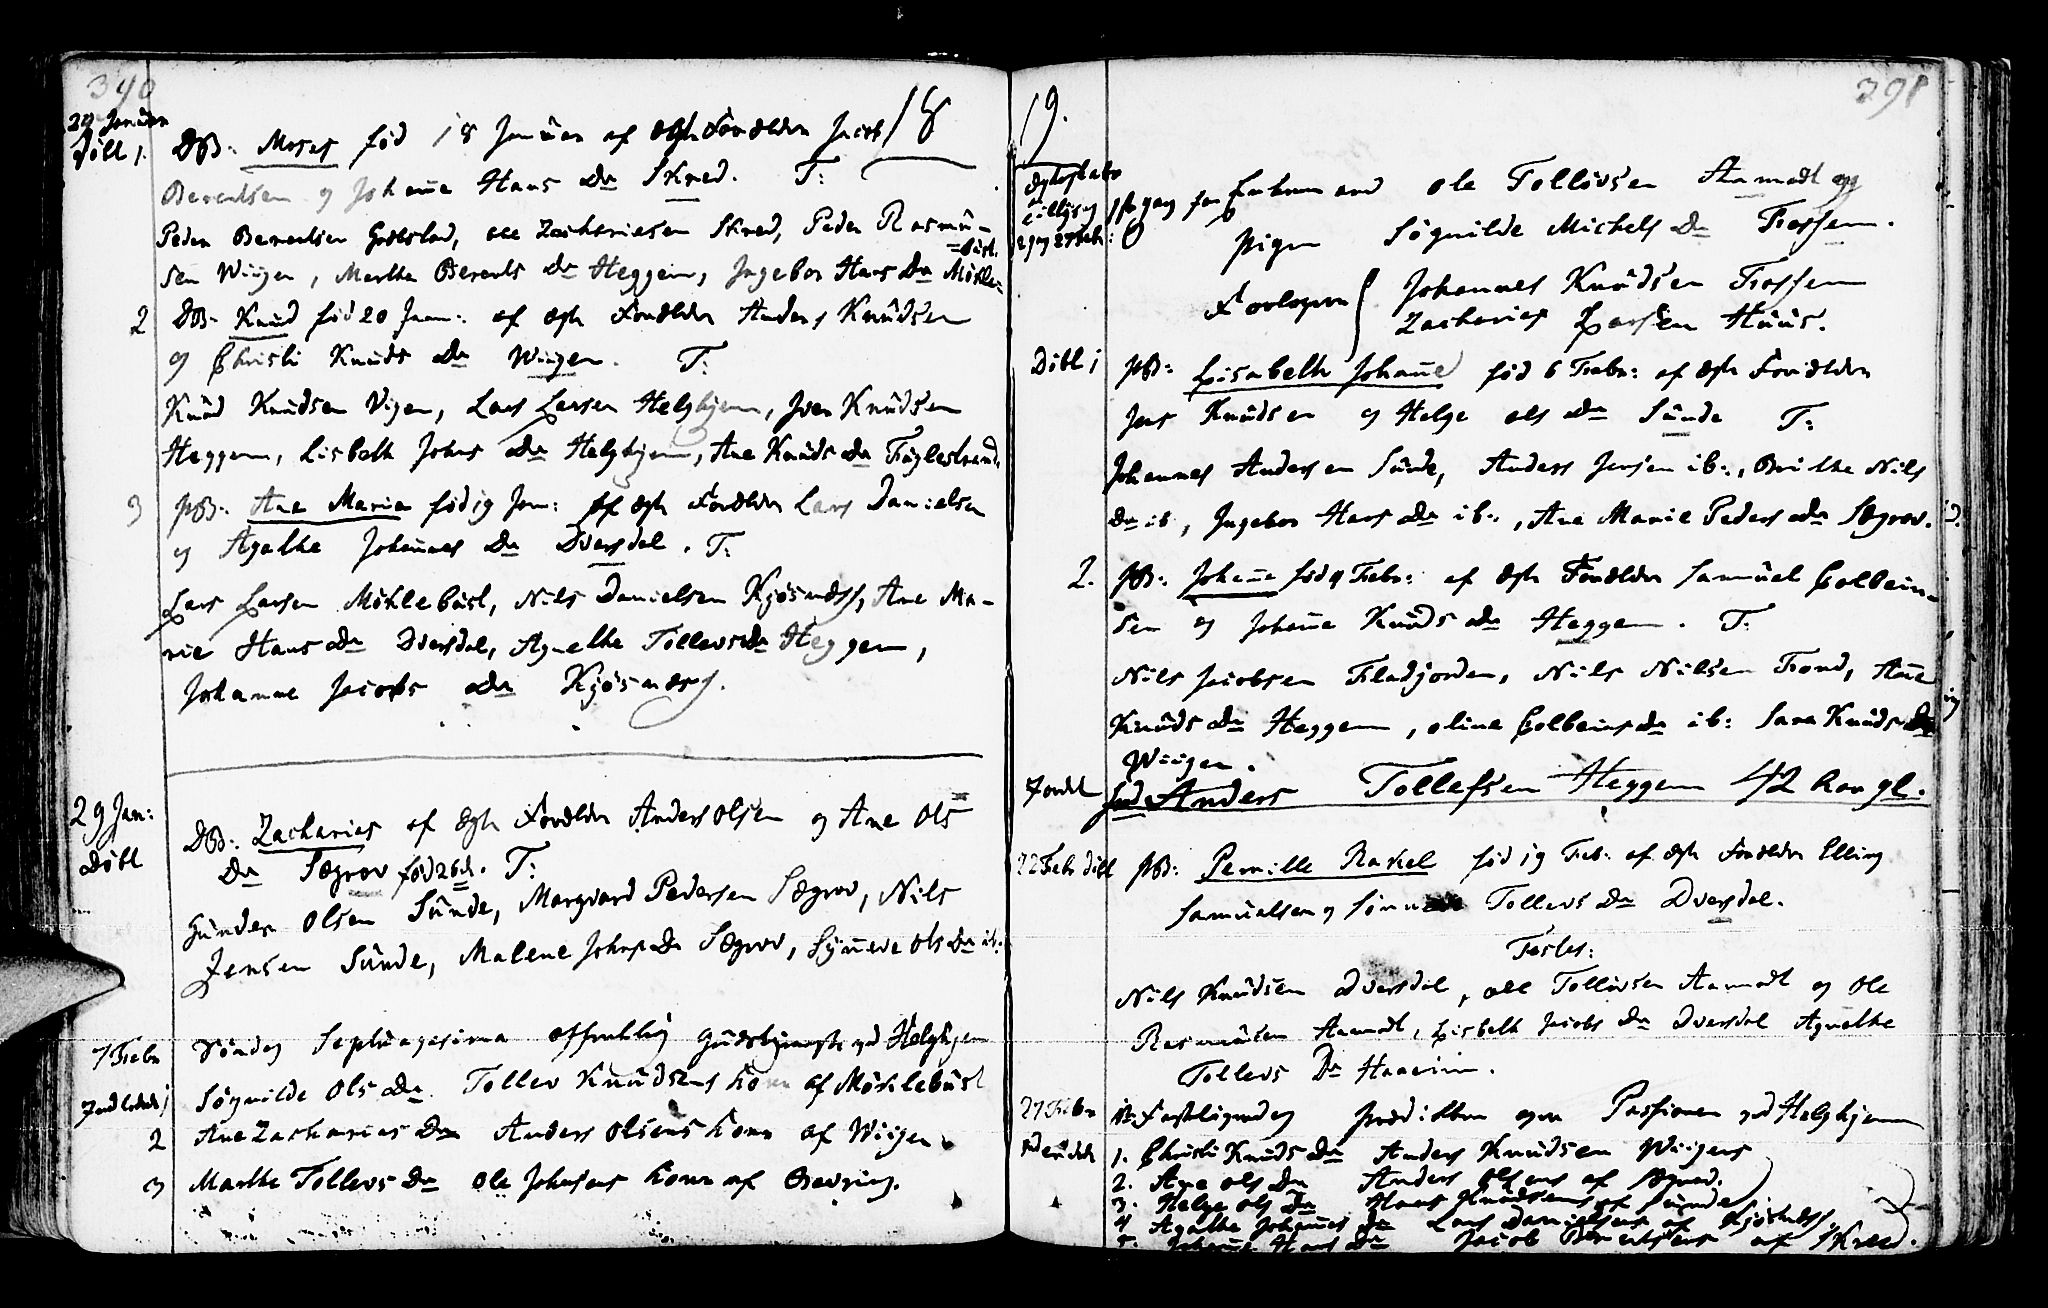 390
18
24 Januar
Döbt 1. DB: Moses föd 18 Januar af Ægte Forældre Jacob
Berentsen og Johanne Hans Dr Skred. T:
Peder Berentsen Godlstad, Ole Zachariesen Skred, Peder Rasmü-
sen Wiigen, Marthe Berents Dr Heggem, Ingebor Hans Dr Möhle-
=büst.
2 DB: Knud föd 20 Jann: af Ægte Forældre Anders Knüdsen
og Christi Knuds Dr Wiigen. T:
Knud Knudsen Vigen, Lars Larsen Helghjem, Iver Knüdsen
Heggem, Lisbeth Johns Dr Helghjem, Ane Knüds Dr Füglestrand.
3 PB: Ane Marie föd 19 Jan: af Ægte Forældre Lars Danielsen
og Agathe Johannes Dr Dversdal. T:
Lars Larsen Möhlebüst, Nils Danielsen Kjösnæss, Ane Ma-
rie Hans Dr Dversdal, Agnethe Tollevs Dr Heggem,
Johanne Jacobs Dr Kjösnæss.
29 Jan:
Döbt
DB: Zacharies af Ægte Forældre Anders Olsen og Ane Ols
Dr Sægrov föd 26 d. T:
Gunder Olsen Sünde, Marqvard Pedersen Sægrov, Nils
Jensen Sünde, Malene Johns Dr Sægrov, Synneve Ols Dr ib:
7 Febr Söndag Septuagesima offentlig Gudstjeneste ved Helghjem
Indledede 1 Sögnilde Ols Dr Tollev Knüdsens Kone af Möhlebüst
2 Ane Zacharies Dr Anders Olsens Kone af Wiigen.
3 Marthe Tollevs Dr Ole Johnsens Kone af Bævring.
391
19.
1ste gang for Ole Tollövsen Aamodt og
Pigen Sögnilde Michels Dr Fossem.
Forlovere Johannes Knüdsen Fossem
Zacharies Larsen Hüüs.
Döbt 1 PB: Lisabeth Johanne föd 6 Febr: af Ægte Forældre
Jens Knüdsen og Helge Ols Dr Sünde T:
Johannes Andersen Sünde, Anders Jensen ib:, Brithe Nils
Dr ib, Ingebor Hans Dr ib:, Ane Marie Peders Dr Sægrov.
2. PB: Johanne föd 9 Febr: af Ægte Forældre Samüel Colbein-
sen og Johanne Knüds Dr Heggem. T:
Nils Jacobsen Fladjorden, Nils Nilsen Fond, Anne
Knüds Dr Heggem, Oline Colbeins Dr ib: Sara Knüds Dr
Wiigen.
Jordet Anders Tollefsen Heggem 42 Aar gl.
22 Febr döbt PB: Pernille Rakel föd 19 Feb: af Ægte Forældre Elling
Samuelsen og Tollevs Dr Dversdal.
Testes:
Nils Knüdsen Dversdal, Ole Tollövsen Aamodt og Ole
Rasmüsen Aamodt, Lisbeth Jacobs Dr Dversdal Agnethe
Tollevs Dr
27 Febr Fastelavnsdag prædikken over Passionen ved Helghjem
1. Christi Knüds Dr Anders Knüdsen Wiigens
2. Ane Ols Dr Anders Olsens af Sægrov.
3. Helge Ols Dr Knüdsens af Sünde
4 Agathe Johannes Dr Lars Danielsens af Kjösnæss.
5. Johanne Hans Dr Jacob Berentsens af Skred.